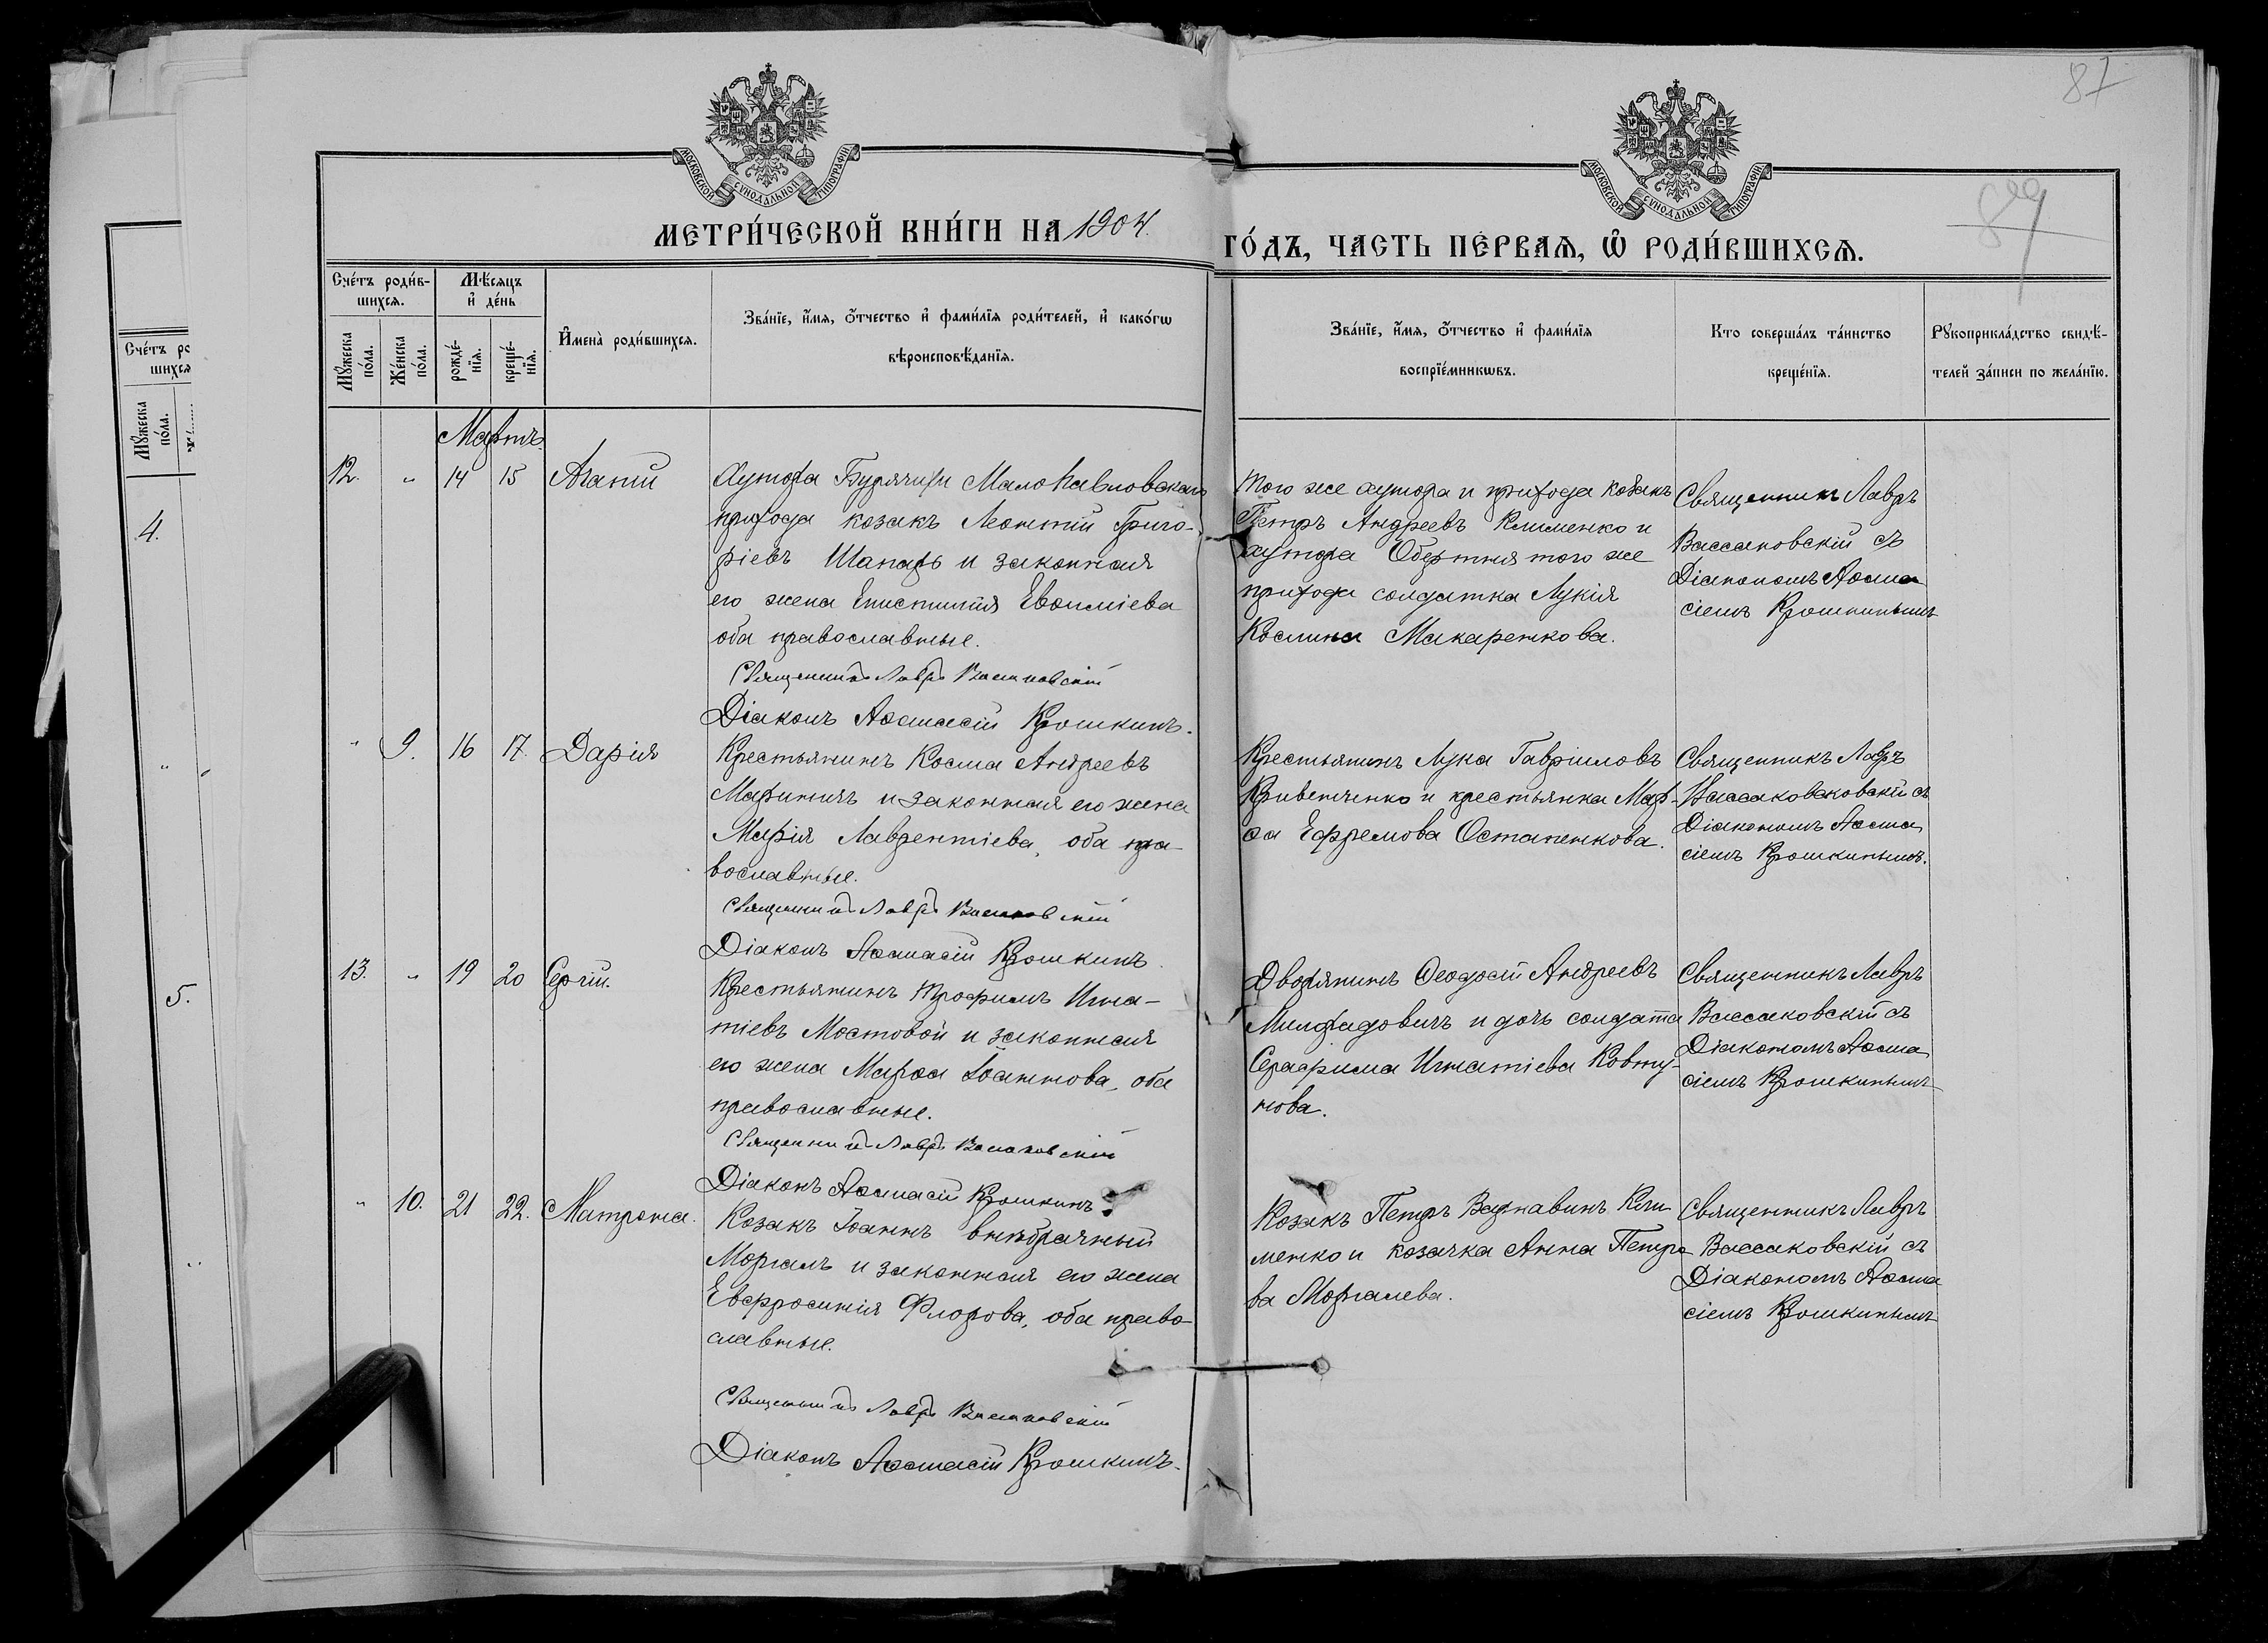 87
89
МОСКОВСКОЙ СѴНОДАЛЬНОЙ ТИПОГРАФІИ
МОСКОВСКОЙ СѴНОДАЛЬНОЙ ТИПОГРАФІИ
МЕТРИ́ЧЕСКОЙ КНИ́ГИ НА 1904.
ГО́ДЪ, ЧАСТЬ ПЕ́РВАѦ, Ѡ҆ РОДИ́ВШИХСѦ.
Сче́тъ роди́в-
шихсѧ.
Мꙋ́жеска по́ла.
Же́нска по́ла.
Мѣ́сяцъ
и҆ де́нь
рожде́-
нїѧ.
креще́-
нїѧ.
И҆мена̀ роди́вшихсѧ.
Зва́нїе, и҆́мѧ, ѻ҆́тчество и҆ фами́лїѧ роди́телей, и҆ како́гѡ
вѣроисповѣ́данїѧ.
Зва́нїе, и҆́мѧ, ѻ҆́тчество и҆ фами́лїѧ
воспрїе́мникѡвъ.
Кто соверша́лъ та́инство
креще́нїѧ.
Рꙋкоприкла́дство свидѣ́-
телей за́писи по жела́нїю.
Сче́тъ ро
шихсѧ
Мꙋ́жеска по́ла.
4.
5.
Мартъ.
12. " 14 15 Агапій
Хутора Бурячихи Малопавловскаго
прихода козакъ Леонтій Григо-
ріевъ Шапарь и законная
его жена Епистимія Евѳиміева
оба православные.
Священникъ Лавръ Вассаковскій
Діаконъ Аѳанасій Крошкинъ.
Того же хутора и прихода козакъ
Петръ Андреевъ Клименко и
хутора Обертня того же
прихода солдатка Лукія
Космина Макаренкова.
Священникъ Лавръ
Вассаковскій съ
Діакономъ Аѳана
сіемъ Крошкинымъ
" 9. 16 17. Дарія
Крестьянинъ Косма Андреевъ
Мариничъ и законная его жена
Марія Лаврентіева, оба пра-
вославные.
Священникъ Лавръ Вассаковскій
Діаконъ Аѳанасій Крошкинъ
Крестьянинъ Лука Гавріиловъ
Кривенченко и крестьянка Мар-
ѳа Ефремова Остапенкова.
Священникъ Лавръ
Вассаковсковскій съ
Діакономъ Аѳана
сіемъ Крошкинымъ.
13. " 19 20 Сергій.
Крестьянинъ Трофимъ Игна-
тіевъ Мостовой и законная
его жена Марѳа Іоаннова, оба
православные.
Священникъ Лавръ Вассаковскій
Діаконъ Аѳанасій Крошкинъ
Дворянинъ Ѳеодосій Андреевъ
Милорадовичъ и дочь солдата
Серафима Игнатіева Ковту-
нова.
Священникъ Лавръ
Вассаковскій съ
Діакономъ Аѳана
сіемъ Крошкинымъ
" 10. 21 22. Матрона.
Козакъ Іоаннъ внѣбрачный
Моргаль и законная его жена
Евфросинія Флорова, оба право-
славные.
Священникъ Лавръ Вассаковскій
Діаконъ Аѳанасій Крошкинъ.
Козакъ Петръ Варнавинъ Кли
менко и козачка Анна Петро
ва Моргалева.
Священникъ Лавръ
Вассаковскій съ
Діакономъ Аѳана
сіемъ Крошкинымъ